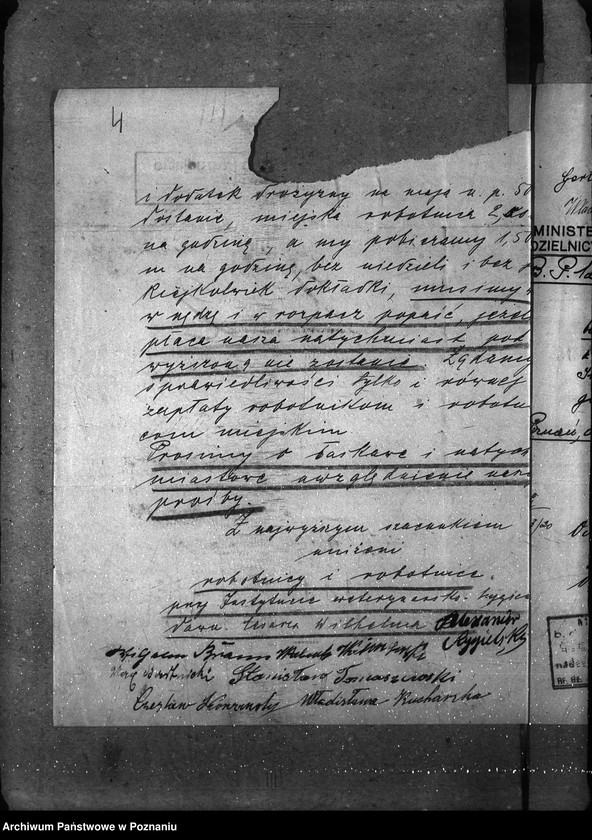 4
i dodatek drożyzny na maja u. p. 50
dostanie, miejska robotnica 2,20
na godzinę, a my pobieramy 1,50
m na godzinę bez niedzieli i bez
kiejkolwiek dokładki, musimy
w nędzę i w rozpacz popaść, jeżel
płaca nasza natychmiast pod
wyższoną nie zostanie. Żądamy
sprawiedliwości tylko i równej
zapłaty robotnikom i robotni
com miejskim
Prosimy o łaskawe i natych
miastowe uwzględnienie nasz
prośby.
Z najwyższym szacunkiem
uniżeni
robotnicy i robotnice.
przy Instytucie weterynarsk. hygien
dawn. Cesarza Wilhelma Alexander
Rygielski
Stanisław Tomaszewski
Czesław Władisława Kucharska
MINISTE
DZIELNIC
B. P. La
Poznań, d
/20
Archiwum Państwowe w Poznaniu